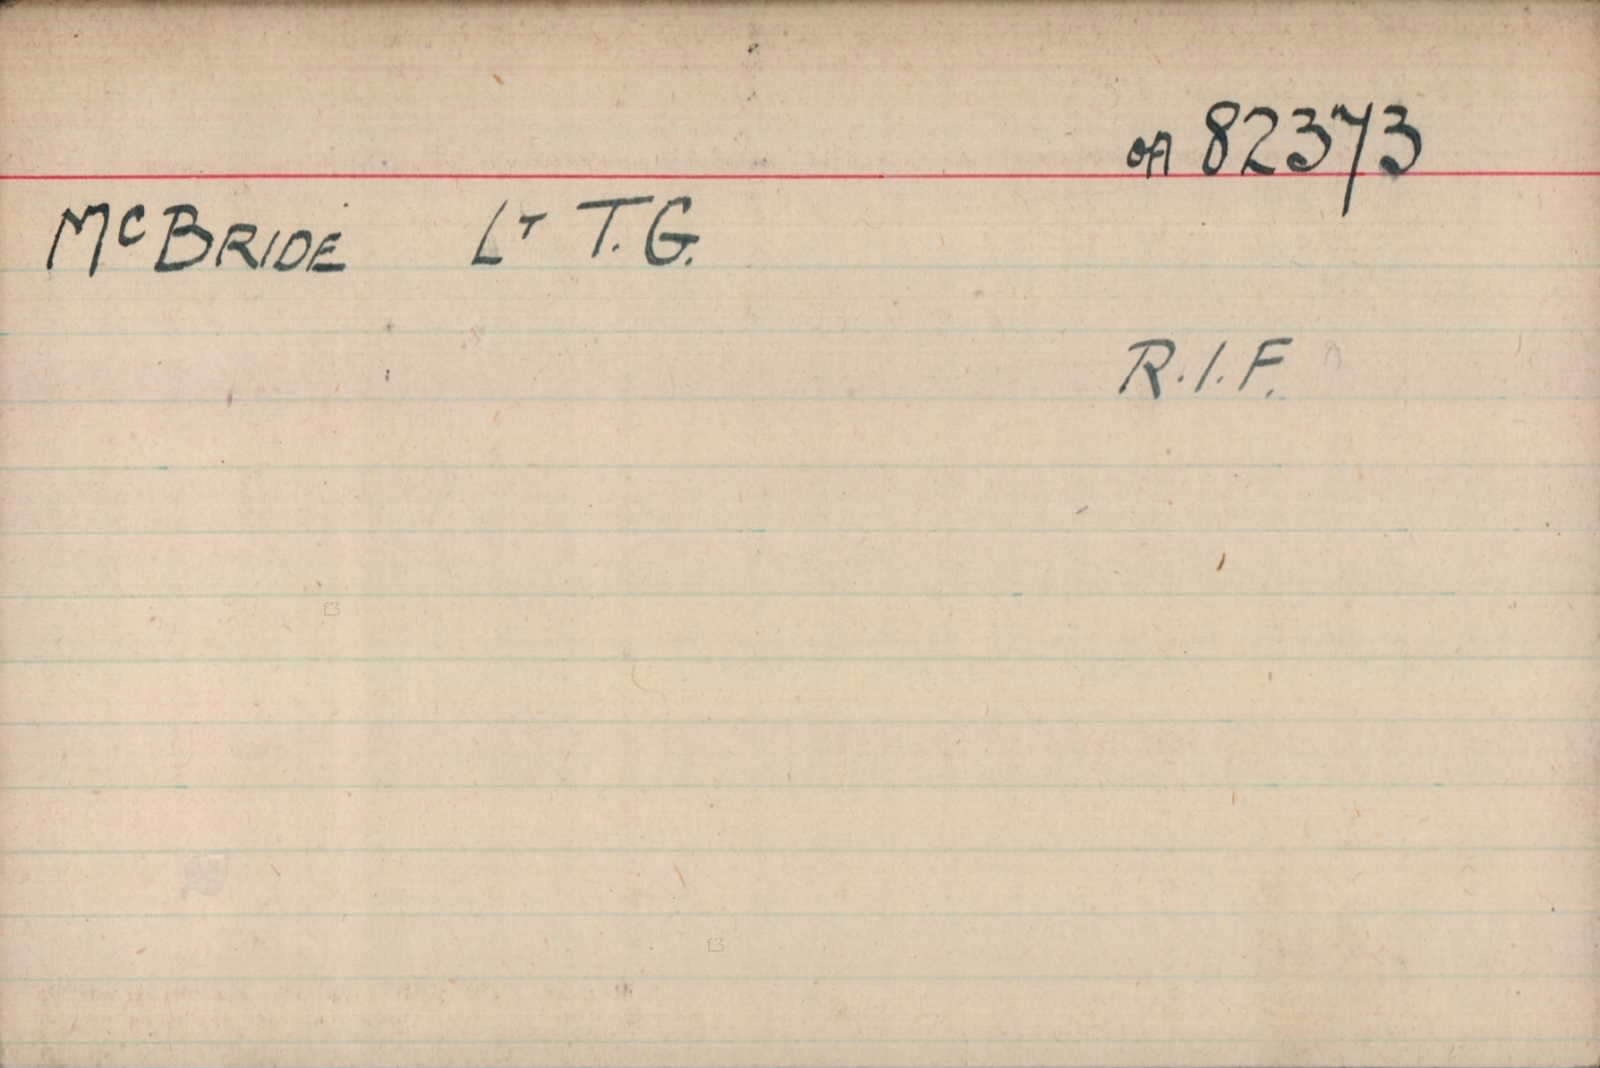 OA 82373
McBRIDE LT T.G.
R.I.F.